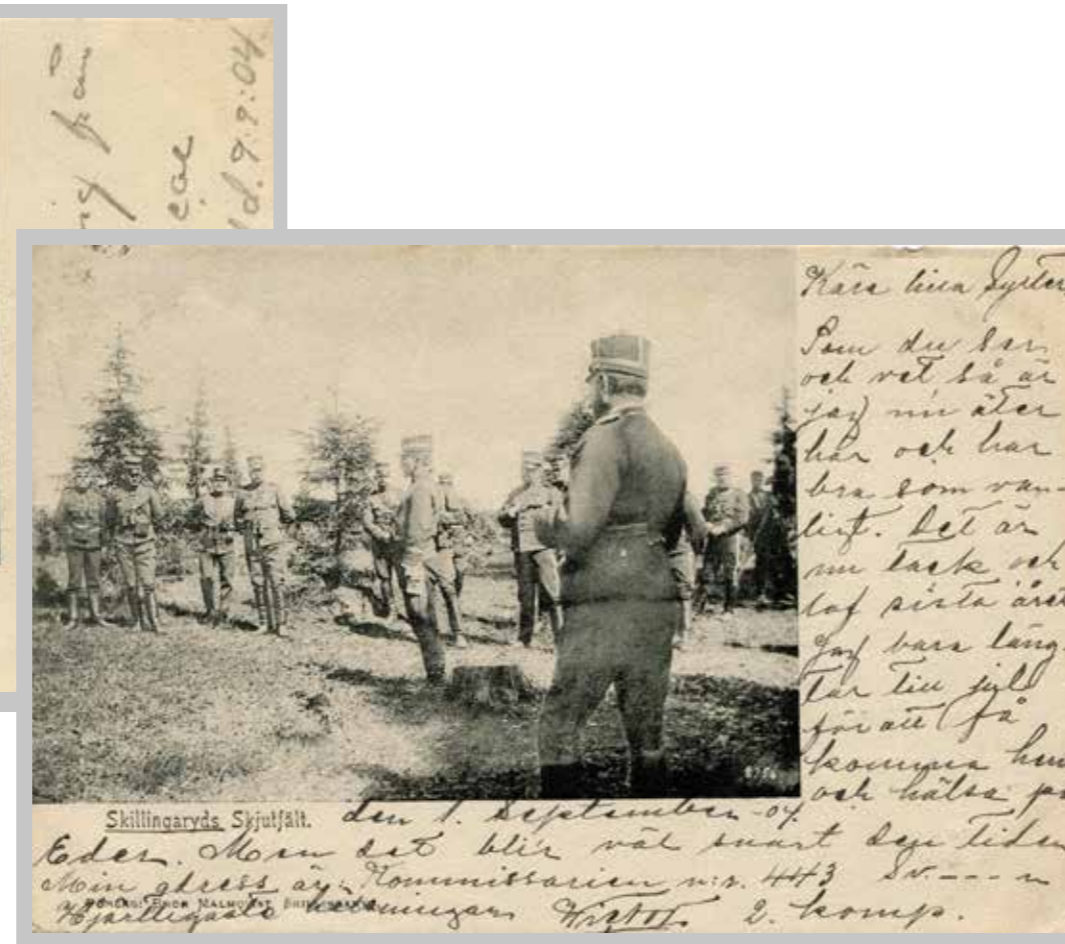 d. 9.9.04
Kära lilla Syster
Som du ser
och vet så är
jag nu åter
här och har
bra som van-
ligt. Det är
nu tack och
lof sista året
Jag bara läng-
tar till jul
för att få
komma hem
och hälsa på
Skillingaryds Skjutfält. den 1. September -04.
Eder. Men det blir väl snart den tiden
Min adress är: Kommissarien n:r. 443 Sv---n
Hjärtliga hälsningar Victor. 2. komp.